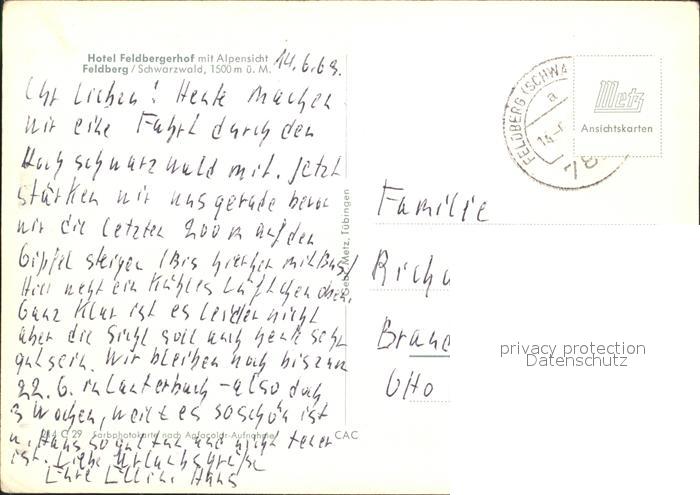 Hotel Feldbergerhof mit Alpensicht
Feldberg / Schwarzwald, 1500 m ü. M.
14.6.69.
Ihr Lieben! Heute machen
wir eine Fahrt durch den
Hochschwarzwald mit. Jetzt
stärken wir uns gerade bevor
wir die letzten 200 m auf den
Gipfel steigen (Bis hierher mit Bus)
Hier weht ein kühles Lüftchen oben.
Ganz klar ist es leider nicht
aber die Sicht soll auch heute sehr
gut sein. Wir bleiben noch bis zum
22.6. in Lauterbach - also doch
3 Wochen, weil es so schön ist
u. Hans so gut tut und nicht teuer
ist. Liebe Urlaubsgrüße
Eure Lilli u. Hans
Gebr. Metz, Tübingen
C 29 Farbphotokarte nach Agfacolor-Aufnahme
CAC
FELDBERG (SCHWA
a
14.-6
78
Metz
Ansichtskarten
Familie
Richa
Brand
Otto
privacy protection
Datenschutz